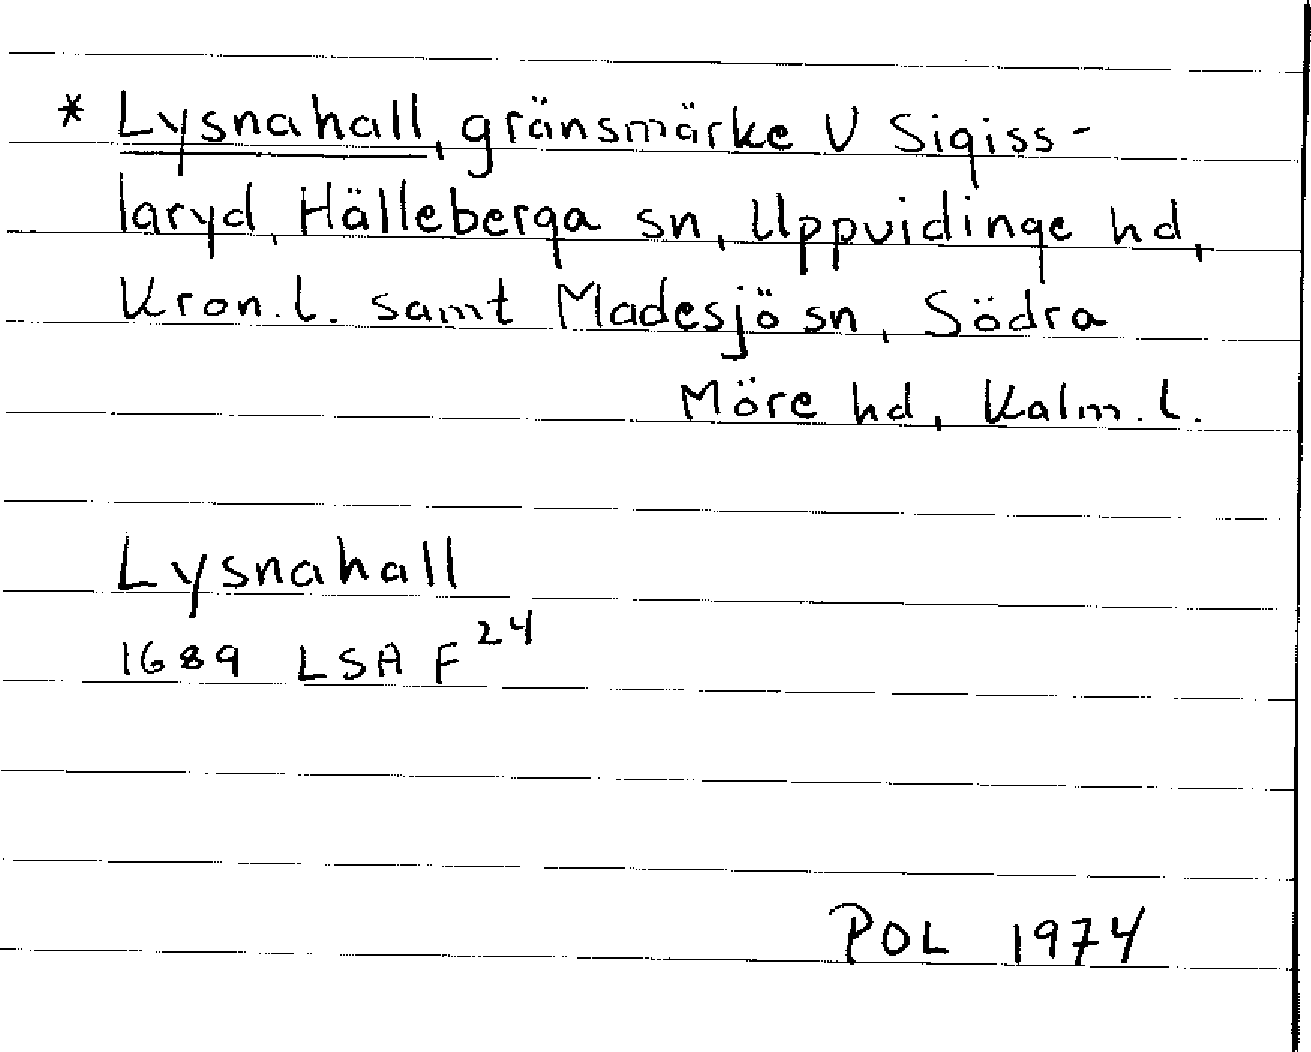 * Lysnahall, gränsmärke V Sigiss-
laryd, Hälleberga sn, Uppvidinge hd,
Kron. l. samt Madesjö sn, Södra
Möre hd, Kalm. l.
Lysnahall
1689 LSA F 24
POL 1974